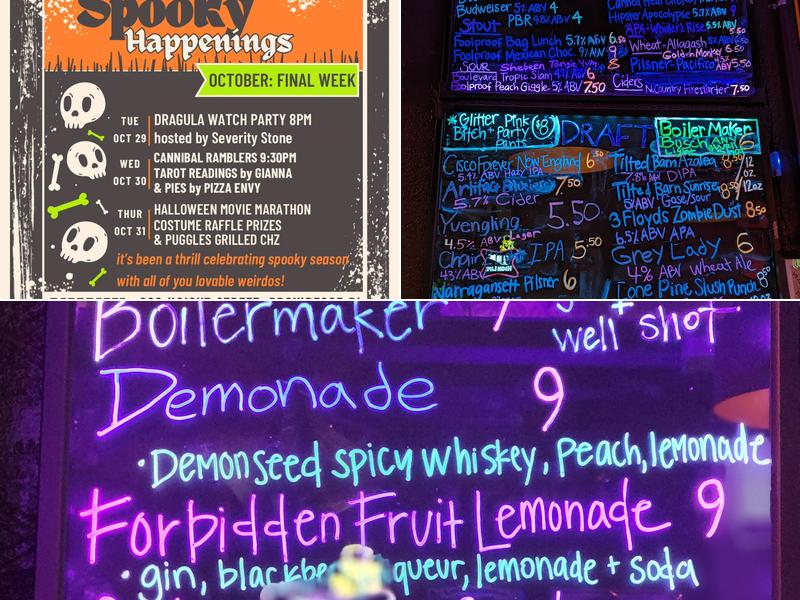 Spooky
Happenings
OCTOBER: FINAL WEEK
TUE
OCT 29
DRAGULA WATCH PARTY 8PM
hosted by Severity Stone
WED
OCT 30
CANNIBAL RAMBLERS 9:30PM
TAROT READINGS by GIANNA
& PIES by PIZZA ENVY
THUR
OCT 31
HALLOWEEN MOVIE MARATHON
COSTUME RAFFLE PRIZES
& PUGGLES GRILLED CHZ
it's been a thrill celebrating spooky season
with all of you lovable weirdos!
Budweiser 5% ABV 4
PBR 4.8% ABV 4
Stout
Foolproof Bag Lunch 5.7% ABV 6
Foolproof Mexican Choc.
SOUR
Boulevard Tropic Slam 6
Foolproof Peach Giggle 5% ABV 7.50
Hipster Apocalypse 5.7% ABV 9
APA-Whaler's Rise 5.5% ABV
Wheat-Allagash
Pilsner-Pacifico
Ciders
7.50
*Glitter Pink
Bitch + Party
Pants
DRAFT
Boiler Maker
Busch
Light
6
Cisco Forever New England 6.50
Hazy IPA
Artifact
7.50
5.7% Cider
Yuengling 5.50
4.5% ABV Lager
IPA 5.50
Narragansett Pilsner 6
Tilted Barn Azalea 8.50
DIPA
12oz
Tilted Barn Sunrise
Gose/Sour
3 Floyds Zombie Dust 8.50
6.5% ABV APA
Grey Lady 6
4% ABV Wheat Ale
Lone Pine, Slush Punch
Boilermaker
well shot
Demonade 9
·Demonseed spicy whiskey, peach, lemonade
Forbidden Fruit Lemonade 9
·gin, lemonade + soda